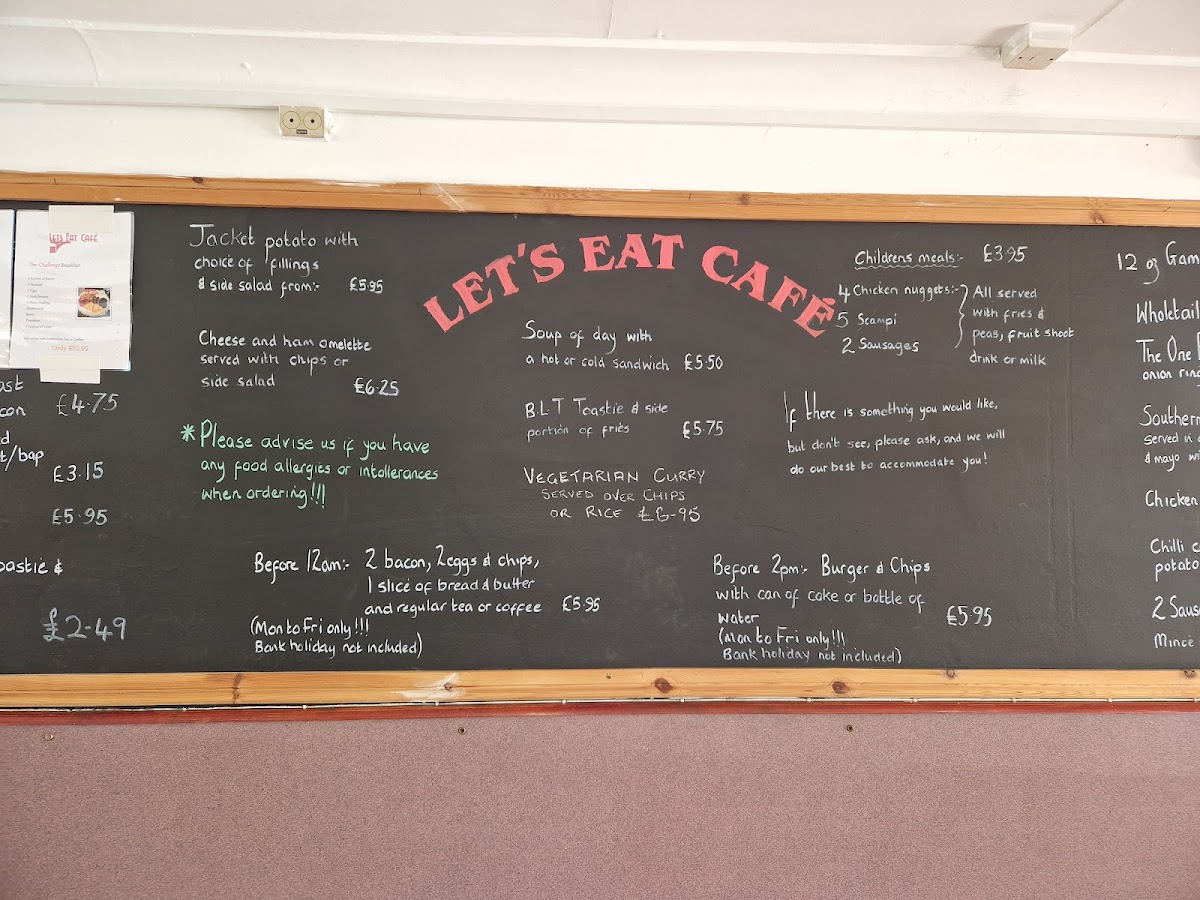 LETS EAT CAFÉ
The Challenge Breakfast
Only £10.95
ast
con £4.75
d
t/bap
£3.15
£5.95
oastie &
£2-49
Jacket potato with
choice of fillings
& side salad from:- £5.95
Cheese and ham omelette
served with chips or
side salad £6.25
*Please advise us if you have
any food allergies or intollerances
when ordering!!!
LET'S EAT CAFÉ
Soup of day with
a hot or cold sandwich £5.50
B.L.T Toastie & side
portion of fries £5.75
VEGETARIAN CURRY
SERVED OVER CHIPS
OR RICE £6-95
Childrens meals:- £3.95
4 Chicken nuggets:-
5 Scampi
2 Sausages
All served
with fries &
peas, fruit shoot
drink or milk
If there is something you would like,
but don't see, please ask, and we will
do our best to accommodate you!
Before 12am:- 2 bacon, 2eggs & chips,
1 slice of bread & butter
and regular tea or coffee £5.95
(Mon to Fri only!!!
Bank holiday not included)
Before 2pm:- Burger & Chips
with can of coke or bottle of
water £5.95
(Mon to Fri only!!!
Bank holiday not included)
12 oz Gam
Wholetail
The One
onion ring
Southern
served in
& mayo wi
Chicken
Chilli c
potato
2 Saus
Mince